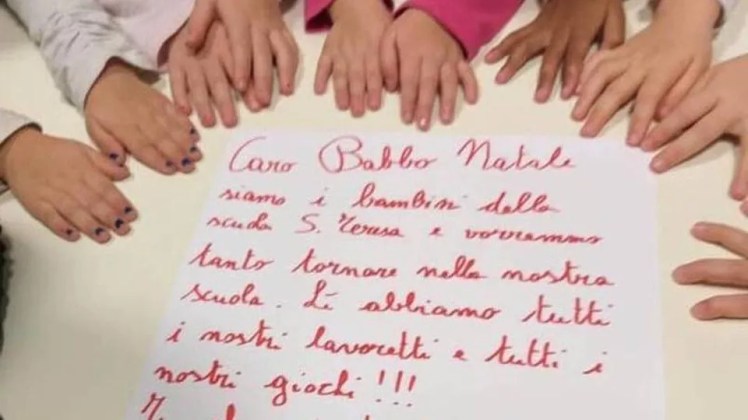 Caro Babbo Natale
siamo i bambini della
scuola S. Teresa e vorremmo
tanto tornare nella nostra
scuola. Lì abbiamo tutti
i nostri lavoretti e tutti i
nostri giochi!!!